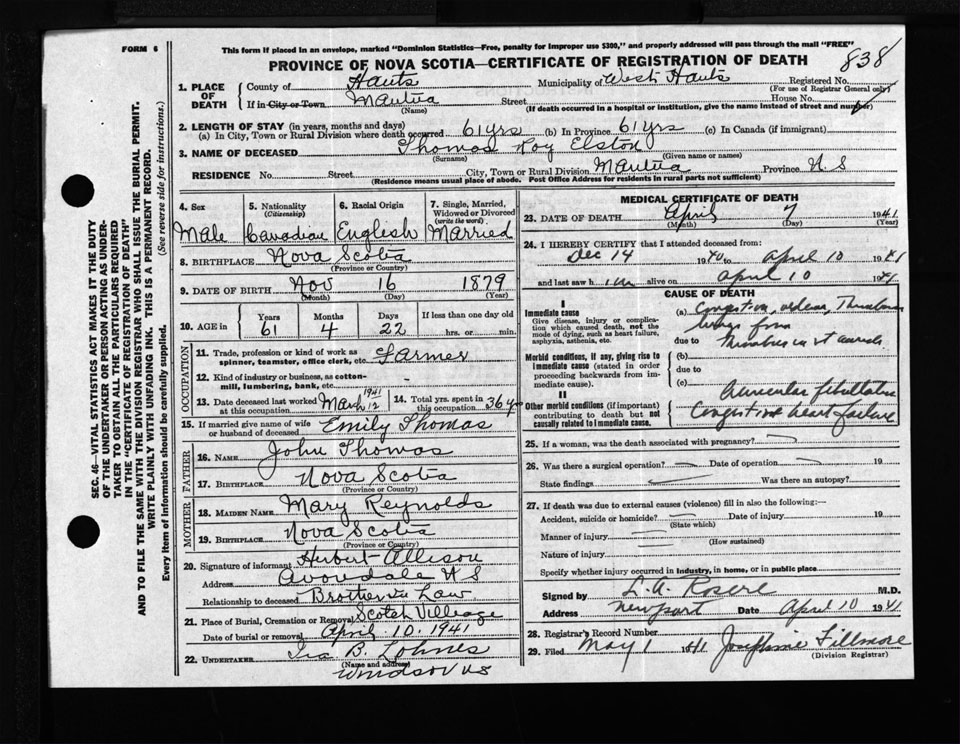 FORM 6
This form if placed in an envelope, marked "Dominion Statistics—Free, penalty for improper use $300," and properly addressed will pass through the mail "FREE"
PROVINCE OF NOVA SCOTIA—CERTIFICATE OF REGISTRATION OF DEATH
838
SEC. 46—VITAL STATISTICS ACT MAKES IT THE DUTY
OF THE UNDERTAKER OR PERSON ACTING AS UNDER-
TAKER TO OBTAIN ALL THE PARTICULARS REQUIRED
IN THE "CERTIFICATE OF REGISTRATION OF DEATH"
AND TO FILE THE SAME WITH THE DIVISION REGISTRAR WHO SHALL ISSUE THE BURIAL PERMIT.
WRITE PLAINLY WITH UNFADING INK. THIS IS A PERMANENT RECORD.
Every item of Information should be carefully supplied. (See reverse side for instructions.)
1. PLACE OF DEATH
County of Hants Municipality of West Hants Registered No.
(For use of Registrar General only)
If in City or Town Mantua Street House No.
(Name) (If death occurred in a hospital or institution, give the name instead of street and number)
2. LENGTH OF STAY (in years, months and days)
(a) In City, Town or Rural Division where death occurred 61 yrs (b) In Province 61 yrs (c) In Canada (if immigrant)
3. NAME OF DECEASED Thomas Roy Elston
(Surname) (Given name or names)
RESIDENCE No. Street City, Town or Rural Division Mantua Province N S
(Residence means usual place of abode. Post Office Address for residents in rural parts not sufficient)
4. Sex Male
5. Nationality (Citizenship) Canadian
6. Racial Origin English
7. Single, Married, Widowed or Divorced (write the word) Married
8. BIRTHPLACE Nova Scotia
(Province or Country)
9. DATE OF BIRTH Nov 16 1879
(Month) (Day) (Year)
10. AGE in Years 61 Months 4 Days 22 If less than one day old hrs. or min.
OCCUPATION
11. Trade, profession or kind of work as spinner, teamster, office clerk, etc. Farmer
12. Kind of industry or business, as cotton-mill, lumbering, bank, etc.
13. Date deceased last worked at this occupation March 12 1941
14. Total yrs. spent in this occupation 36 yrs
15. If married give name of wife or husband of deceased Emily Thomas
FATHER
16. NAME John Thomas
17. BIRTHPLACE Nova Scotia
(Province or Country)
MOTHER
18. MAIDEN NAME Mary Reynolds
19. BIRTHPLACE Nova Scotia
(Province or Country)
20. Signature of informant Hubert Allison
Address Avondale N S
Relationship to deceased Brother in Law
21. Place of Burial, Cremation or Removal Scotch Village
Date of burial or removal April 10, 1941
22. UNDERTAKER Ira B. Lohnes
(Name and address)
Windsor NS
MEDICAL CERTIFICATE OF DEATH
23. DATE OF DEATH April 7 1941
(Month) (Day) (Year)
24. I HEREBY CERTIFY that I attended deceased from:
Dec 14 1940 to April 10 1941
and last saw h im alive on April 10 1941
CAUSE OF DEATH
I
Immediate cause
Give disease, injury or complication which caused death, not the mode of dying, such as heart failure, asphyxia, asthenia, etc.
(a) Congestion,
lungs from
due to
Thrombus in
Morbid conditions, if any, giving rise to immediate cause (stated in order proceeding backwards from immediate cause).
(b)
due to
(c)
II
Other morbid conditions (if important) contributing to death but not causally related to immediate cause.
Auricular fibrillation
Congestive heart failure
25. If a woman, was the death associated with pregnancy?
26. Was there a surgical operation? Date of operation 19
State findings Was there an autopsy?
27. If death was due to external causes (violence) fill in also the following:—
Accident, suicide or homicide? Date of injury 19
(State which)
Manner of injury
(How sustained)
Nature of injury
Specify whether injury occurred in industry, in home, or in public place
Signed by L. A. M.D.
Address Newport Date April 10 1941
28. Registrar's Record Number
29. Filed May 1 1941 Josephine Fillmore
(Division Registrar)